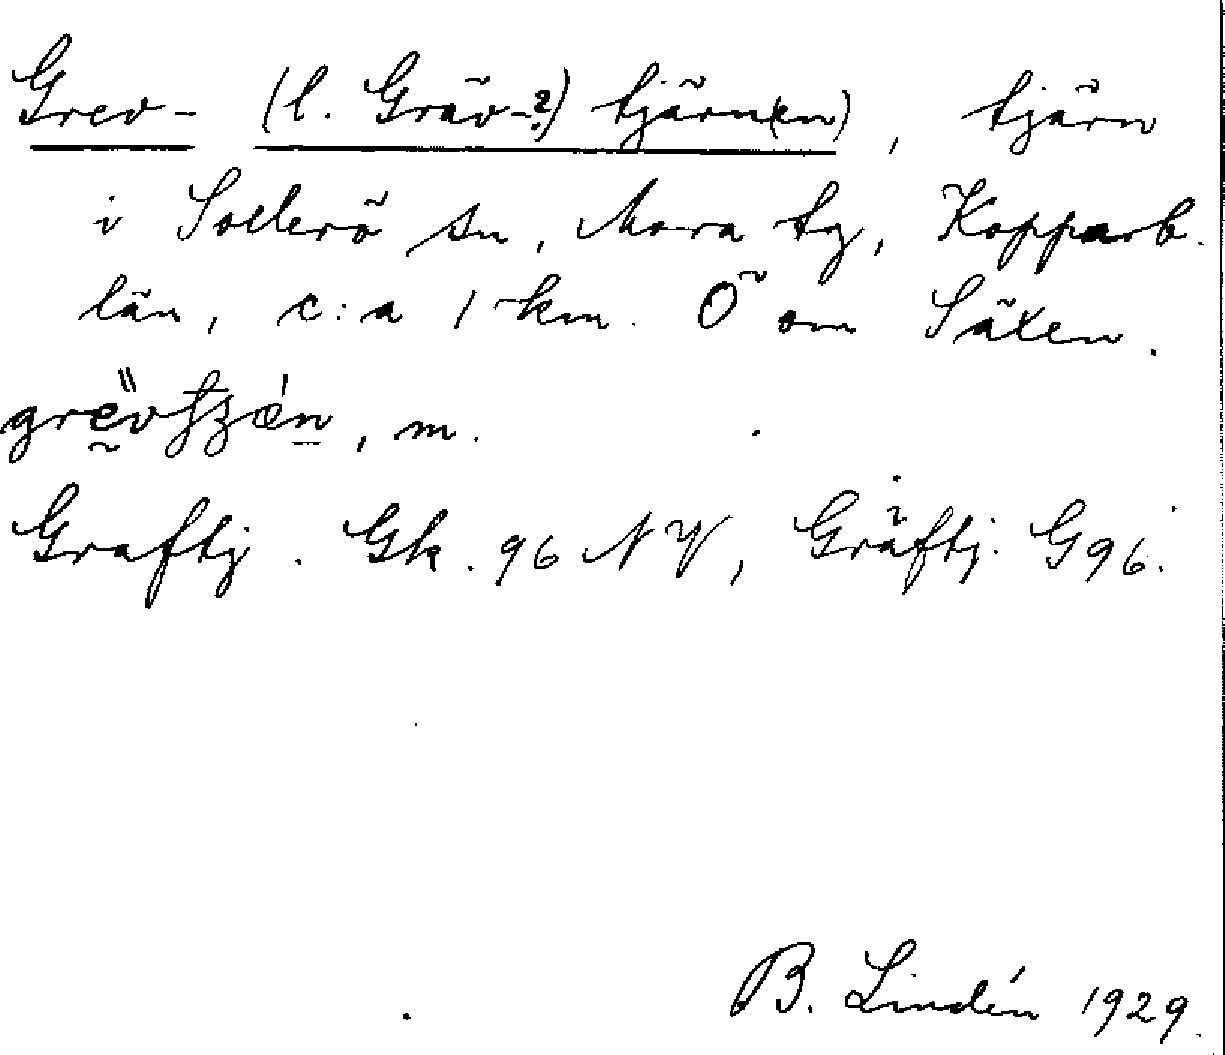 Grev- (l. Gräv-?) tjärn(en), tjärn
i Sollerö sn, Mora tg, Kopparb.
län, c:a 1 km. Ö om Säxen.
, m.
Graftj. Gk. 96 NV, Gräftj. G 96.
B. Lindén 1929.